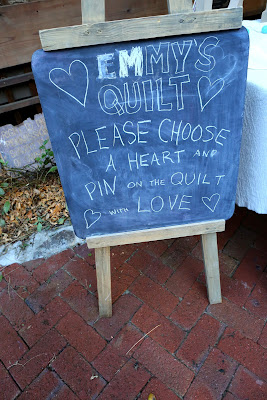 EMMY'S
QUILT
PLEASE CHOOSE
A HEART AND
PIN ON THE QUILT
WITH LOVE